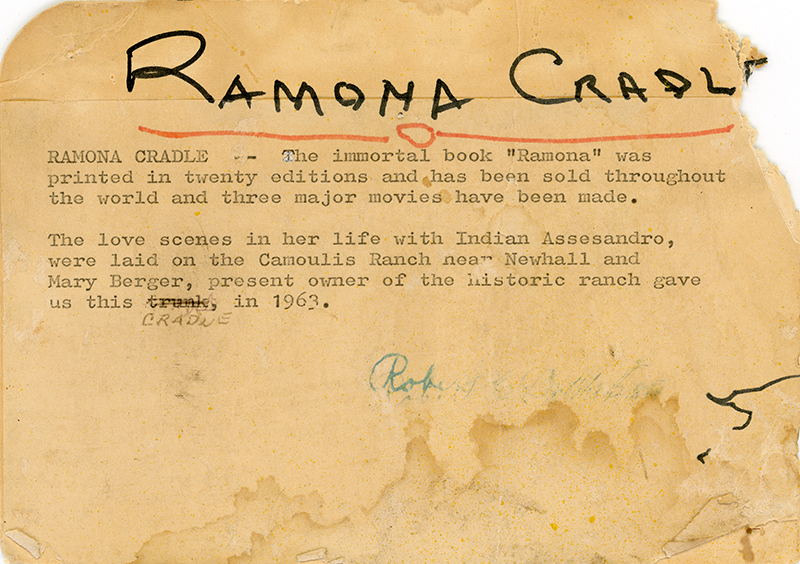 RAMONA CRADLE
RAMONA CRADLE -- The immortal book "Ramona" was
printed in twenty editions and has been sold throughout
the world and three major movies have been made.
The love scenes in her life with Indian Assesandro,
were laid on the Camoulis Ranch near Newhall and
Mary Berger, present owner of the historic ranch gave
us this trunk, in 1963.
CRADLE
Robert